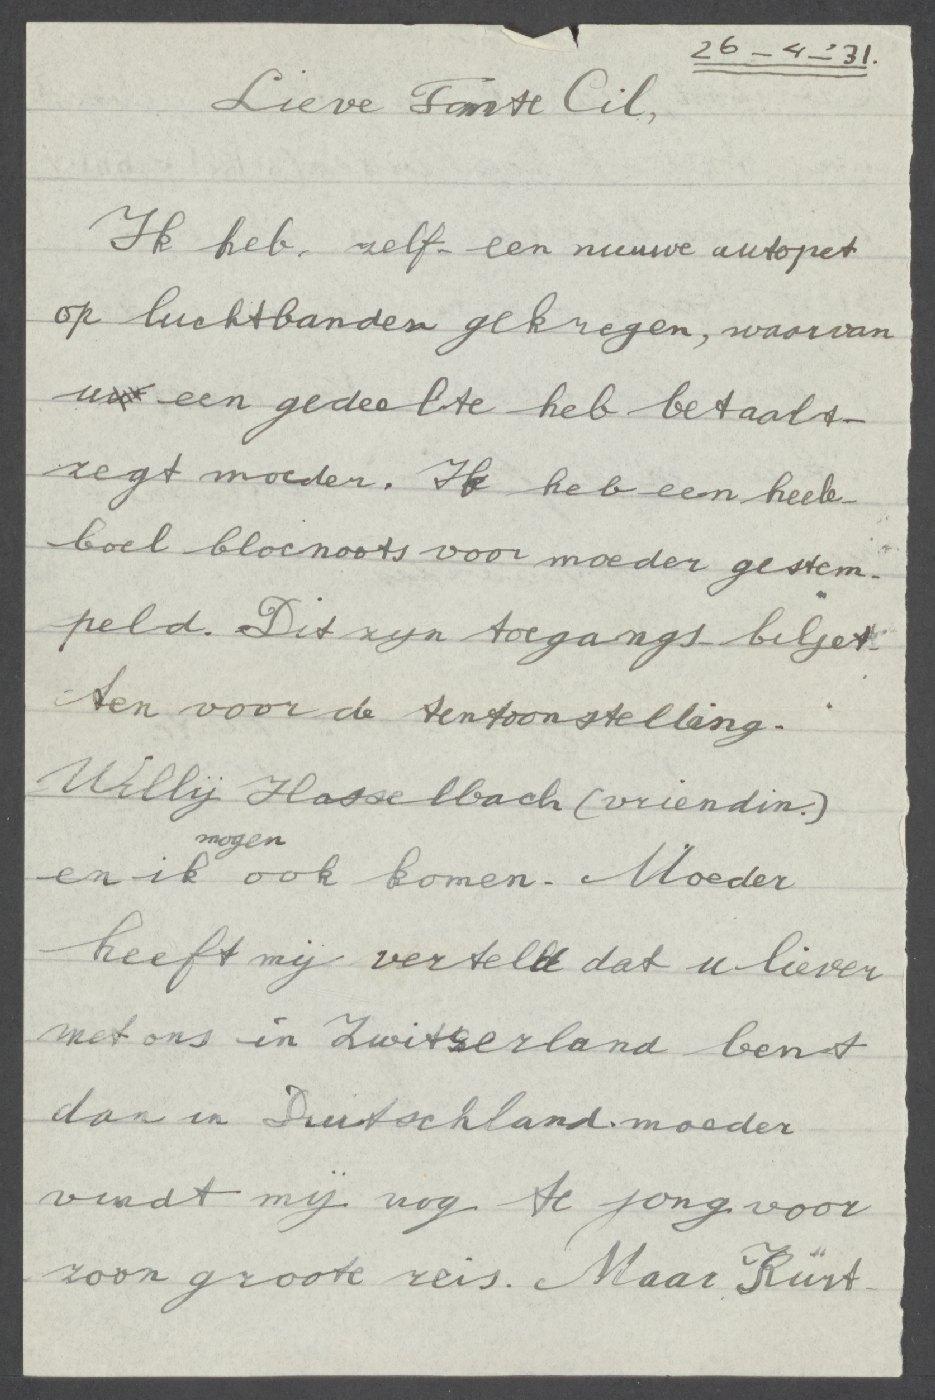 26-4-'31.
Lieve Tante Cil,
Ik heb. zelf een nieuwe autopet
op luchtbanden gekregen, waarvan
u een gedeelte heb betaalt
zegt moeder. Ik heb een heele-
boel blocnoots voor moeder gestem-
peld. Dit zijn toegangs biljet-
ten voor de tentoonstelling.
Willij Hasselbach (vriendin.)
mogen
en ik ook komen. Moeder
heeft mij verteld dat u liever
met ons in Zwitserland bent
dan in Duitschland. moeder
vindt mij nog te jong voor
zoon groote reis. Maar Kürt